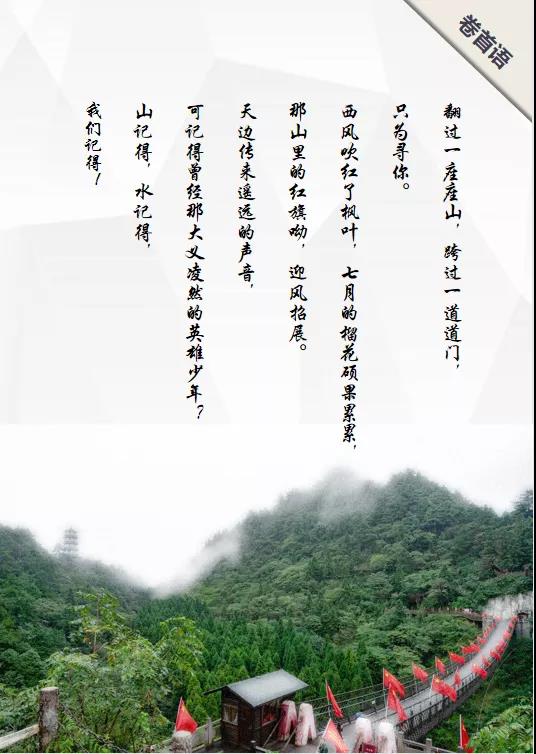 卷首语
翻过一座座山，跨过一道道门，
只为寻你。
西风吹红了枫叶，七月的榴花硕果累累，
那山里的红旗呦，迎风招展。
天边传来遥远的声音，
可记得曾经那大义凌然的英雄少年？
山记得，水记得，
我们记得！